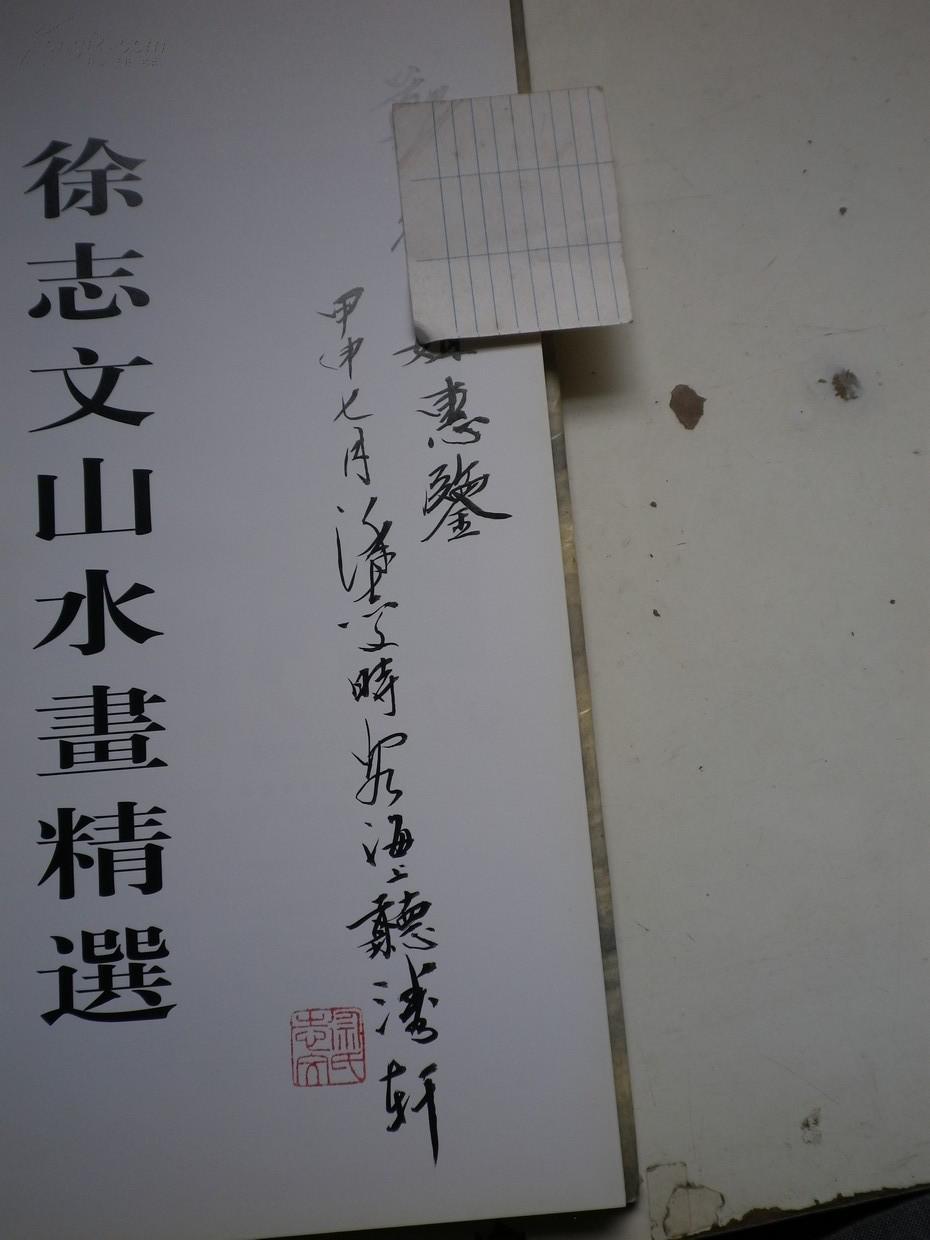 惠鑒
甲申七月徐志文時客海上聽濤軒
徐志文山水畫精選
徐氏志文